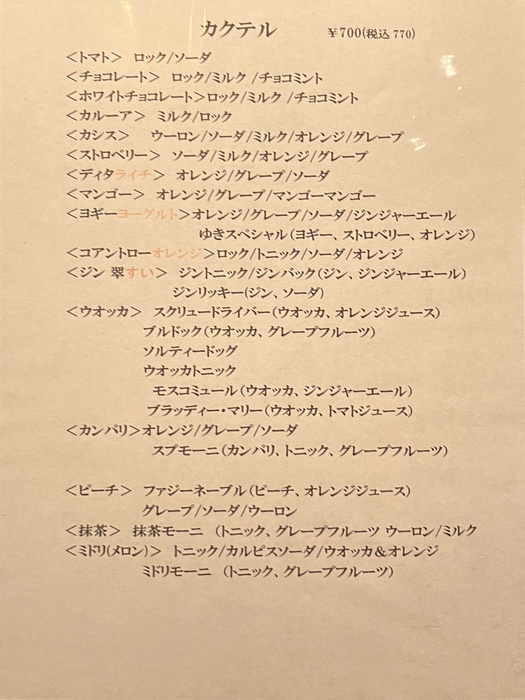 カクテル ￥700(税込 770)
＜トマト＞ ロック/ソーダ
＜チョコレート＞ ロック/ミルク /チョコミント
＜ホワイトチョコレート＞ロック/ミルク /チョコミント
＜カルーア＞ ミルク/ロック
＜カシス＞ ウーロン/ソーダ/ミルク/オレンジ/グレープ
＜ストロベリー＞ ソーダ/ミルク/オレンジ/グレープ
＜ディタライチ＞ オレンジ/グレープ/ソーダ
＜マンゴー＞ オレンジ/グレープ/マンゴーマンゴー
＜ヨギーヨーグルト＞オレンジ/グレープ/ソーダ/ジンジャーエール
ゆきスペシャル(ヨギー、ストロベリー、オレンジ)
＜コアントローオレンジ＞ロック/トニック/ソーダ/オレンジ
＜ジン 翠すい＞ ジントニック/ジンバック(ジン、ジンジャーエール)
ジンリッキー(ジン、ソーダ)
＜ウオッカ＞ スクリュードライバー(ウオッカ、オレンジジュース)
ブルドック(ウオッカ、グレープフルーツ)
ソルティードッグ
ウオッカトニック
モスコミュール(ウオッカ、ジンジャーエール)
ブラッディー・マリー(ウオッカ、トマトジュース)
＜カンパリ＞オレンジ/グレープ/ソーダ
スプモーニ(カンパリ、トニック、グレープフルーツ)
＜ピーチ＞ ファジーネーブル(ピーチ、オレンジジュース)
グレープ/ソーダ/ウーロン
＜抹茶＞ 抹茶モーニ (トニック、グレープフルーツ ウーロン/ミルク
＜ミドリ(メロン)＞ トニック/カルピスソーダ/ウオッカ＆オレンジ
ミドリモーニ (トニック、グレープフルーツ)